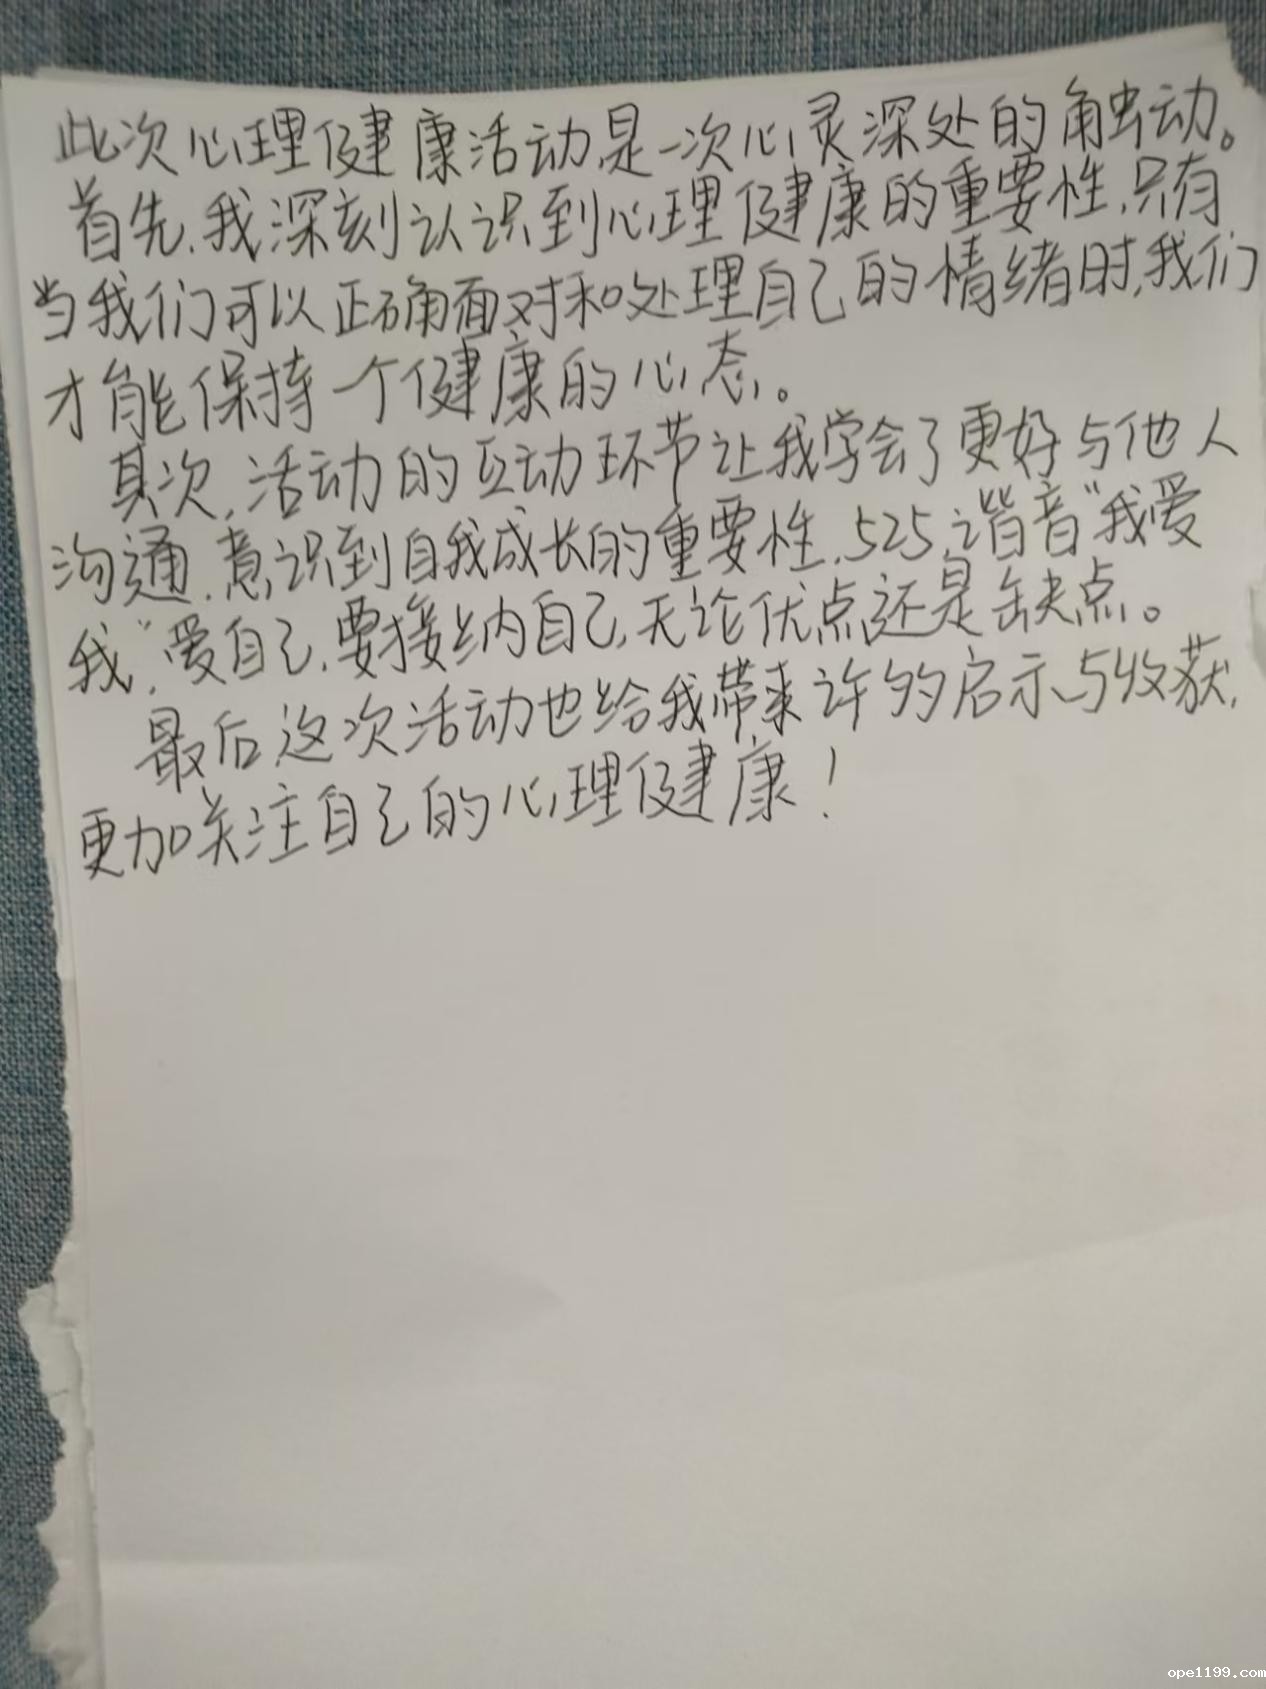 此次心理健康活动是一次心灵深处的触动。
首先,我深刻认识到心理健康的重要性,只有
当我们可以正确面对和处理自己的情绪时,我们
才能保持一个健康的心态。
其次,活动的互动环节让我学会了更好与他人
沟通,意识到自我成长的重要性,525,谐音“我爱
我”,爱自己,要接纳自己,无论优点还是缺点。
最后,这次活动也给我带来许多启示与收获,
更加关注自己的心理健康!
ope1199.com